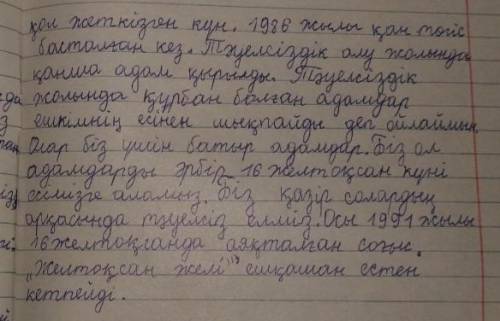 қол жеткізген күн. 1986 жылы қан төгіс
басталған кез. Тәуелсіздік алу жолында
қанша адам қырылды. Тәуелсіздік
жолында құрбан болған адамдар
ешкімнің есінен шықпайды деп ойлаймын
Олар біз үшін батыр адамдар. Біз ол
адамдарды әрбір 16 желтоқсан күні
есімізге аламыз. Біз қазір солардың
арқасында тәуелсіз елміз. Осы 1991 жылы
16 желтоқсанда аяқталған соғыс.
"Желтоқсан желі" ешқашан естен
кетпейді.